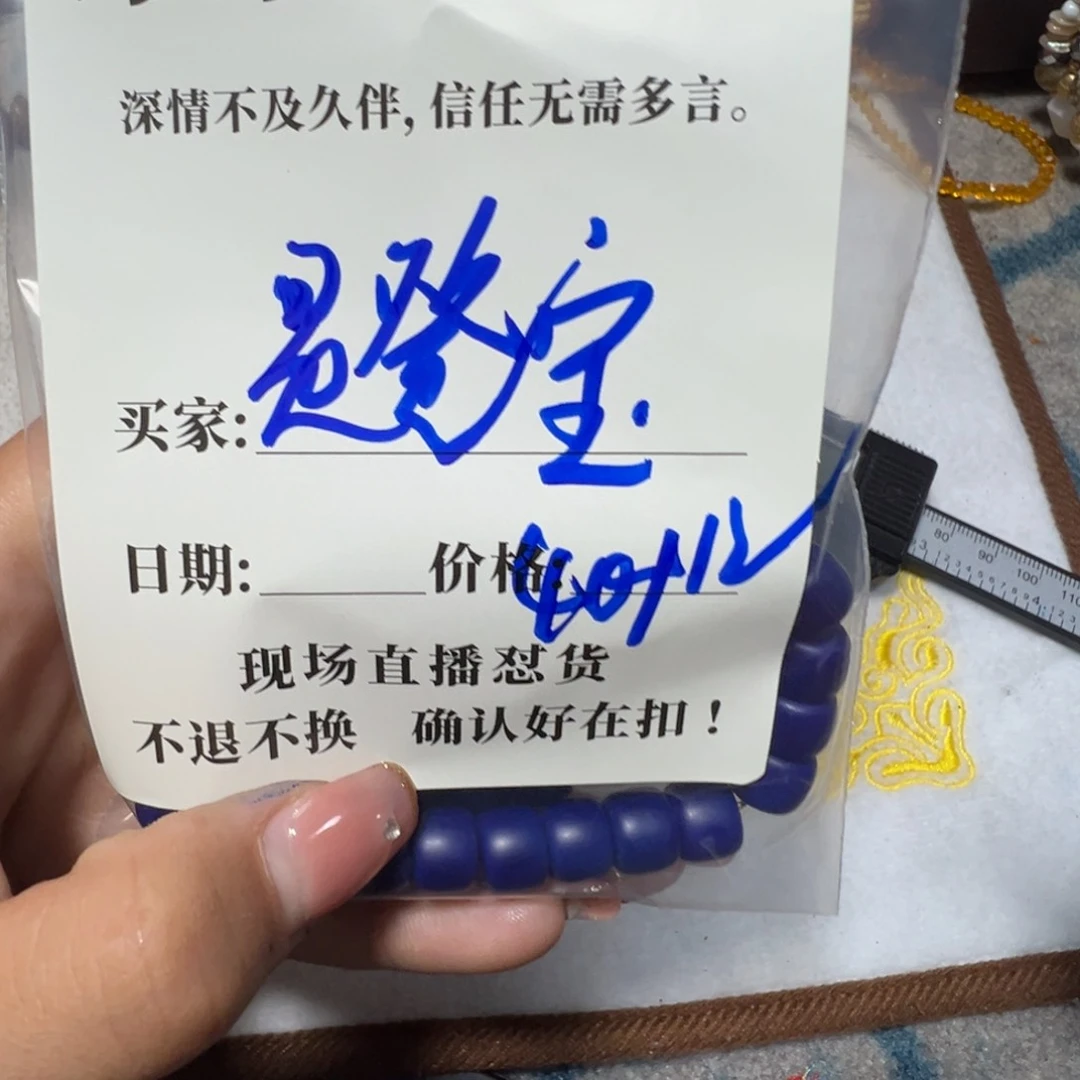 深情不及久伴,信任无需多言。
买家: 宝
日期:______价格:
现场直播怼货
不退不换 确认好在扣!
80 90 100 110